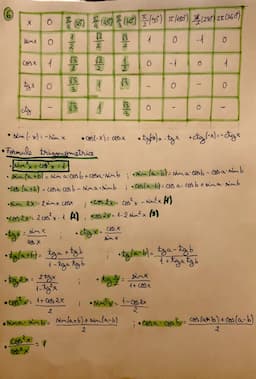 6
x 0 π/6 (30°) π/4 (45°) π/3 (60°) π/2 (90°) π (180°) 3π/2 (270°) 2π (360°)
sin x 0 1/2 √2/2 √3/2 1 0 -1 0
cos x 1 √3/2 √2/2 1/2 0 -1 0 1
tg x 0 √3/3 1 √3 - 0 - 0
ctg - √3 1 √3/3 0 - 0 -
• sin(-x) = -sin x • cos(-x) = cos x • tg(-x) = -tg x • ctg(-x) = -ctg x
• Formule trigonometrice
sin²x + cos²x = 1
• sin(a+b) = sin a cos b + cos a · sin b ; • sin(a-b) = sin a · cos b - cos a · sin b
• cos(a+b) = cos a cos b - sin a · sin b ; • cos(a-b) = cos a · cos b + sin a · sin b
• sin 2x = 2 sin x cos x ; • cos 2x = cos²x - sin²x (1)
• cos 2x = 2cos²x - 1 (2) ; cos 2x = 1 - 2 sin²x (3)
• tg x = sin x / cos x ; • ctg x = cos x / sin x
• tg(a+b) = tg a + tg b / 1 - tg a tg b ; • tg(a-b) = tg a - tg b / 1 + tg a tg b
• tg 2x = 2tg x / 1 - tg²x ; • tg x/2 = sin x / 1 + cos x
• cos²x = 1 + cos 2x / 2 ; • sin²x = 1 - cos 2x / 2
• sin a · sin b = sin(a+b) + sin(a-b) / 2 ; • cos a · cos b = cos(a+b) + cos(a-b) / 2